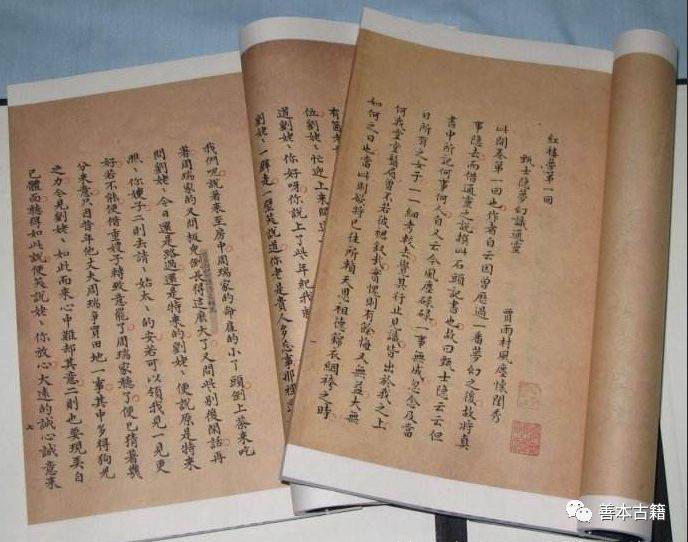 紅樓夢第一回
甄士隐夢幻識通靈 賈雨村風塵懷閨秀
此開卷第一回也作者自云因曾歷過一番夢幻之後故將真
事隐去而借通靈之說撰此石頭記書也故曰甄士隐云云但
書中所記何事何人自又云今風塵碌碌一事無成忽念及當
日所有之女子一一細考較去覺其行止見識皆出於我之上
何我堂堂鬚眉曾不若彼裙釵我實愧則有餘悔又無益大無
如何之日也當此則欲將已往所賴天恩祖德錦衣紈袴之時
有箇
位劉姥、忙迎上來問
道劉姥、你好呀你說上了些年紀我
劉姥、一壁走一壁笑說道你老是貴人多忘事那裡
我們呢說著來至房中周瑞家的命雇的小丫頭倒上茶來吃
著周瑞家的又問板兒倒長得這麼大了又問些別後閒話再
問劉姥、今日還是路過還是特來的劉姥、便說原是特來
瞧、你嫂子二則去請、姑太、的安若可以領我見一見更
好若不能便借重嫂子轉致意罷了周瑞家聽了便已猜著幾
分來意只因昔年他丈夫周瑞爭買田地一事其中多得狗兒
之力今見劉姥、如此而來心中難却其意二則也要現弄自
已體面聽得如此說便笑說姥、你放心大遠的誠心誠意來
七
善本古籍